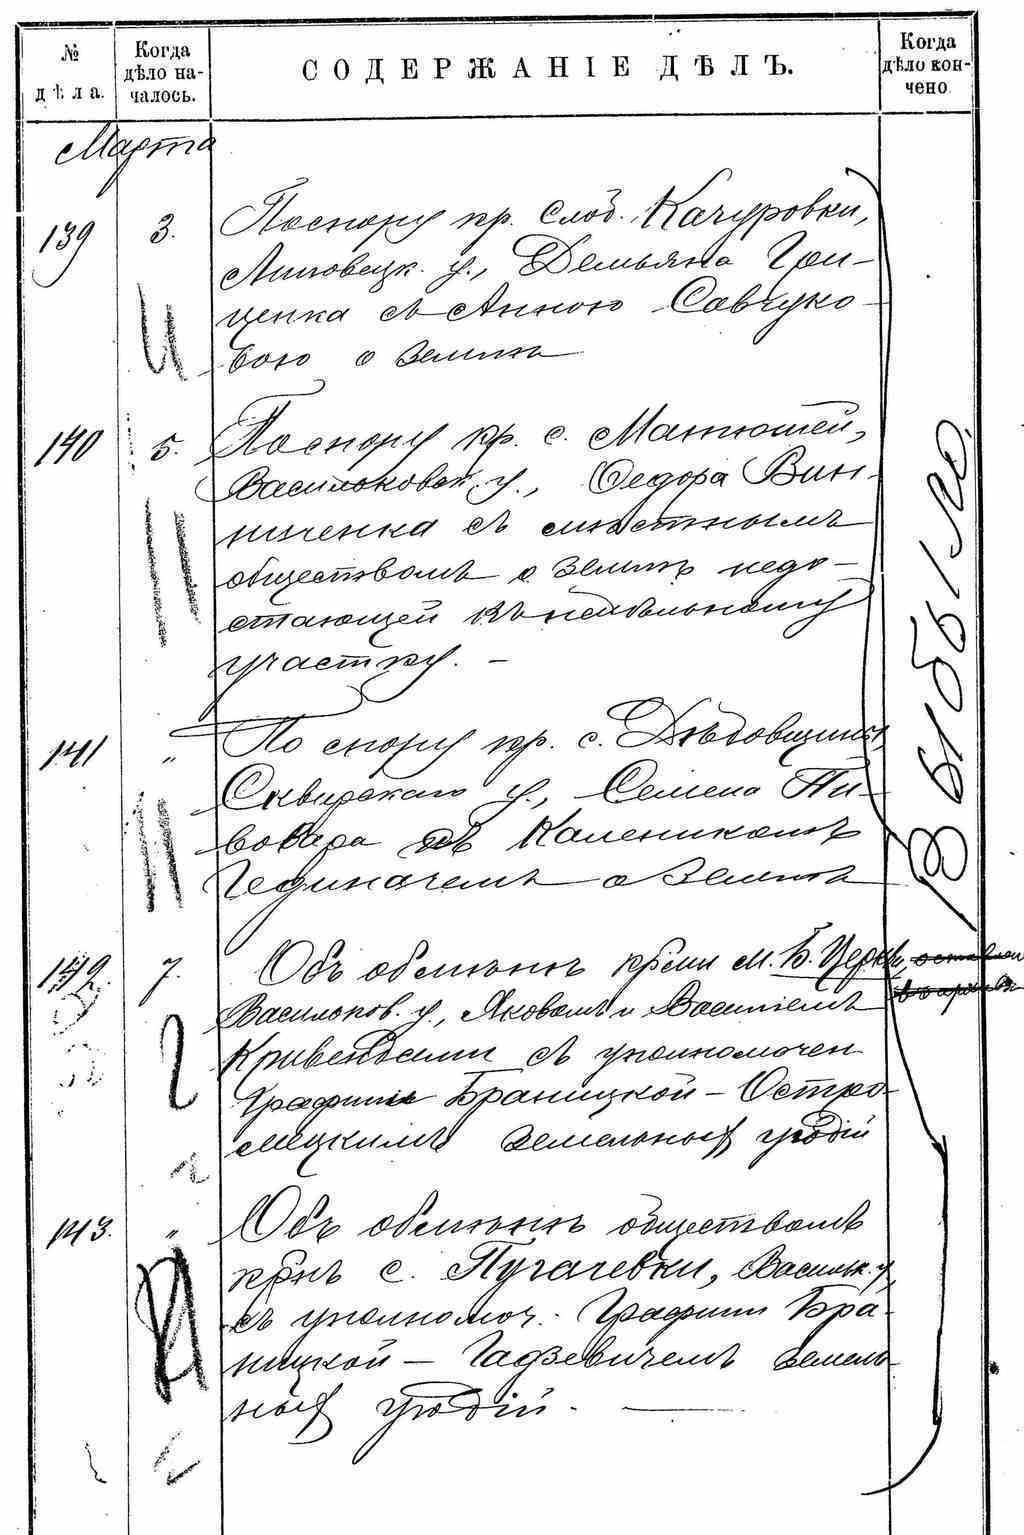 № дѣла.
Когда дѣло на-
чалось.
СОДЕРЖАНІЕ ДѢЛЪ.
Когда дѣло кон-
чено
Марта
139 3. По спору кр. слоб. Качуровки,
Липовецк. у., Демьяна Гри-
ценка съ Анною Савчуко-
вою о землѣ
140 5. По спору кр. с. Матюшей,
Васильковск. у., Ѳедора Вин-
ниченка съ мѣстнымъ
обществомъ о землѣ недо-
стающей къ надѣльному
участку. -
141 " По спору кр. с. Дѣдовщины,
Сквирскаго у., Семена Пи-
вовара съ Калеником
Гединачемъ о землѣ
142 7. Объ обмѣнѣ кр-ми м. Б. Церкви,
Васильков. у., Яковомъ и Василіемъ
Кривенками съ уполномочен
Графини Браницкой - Остро-
мецкимъ земельных угодій
143. " Объ обмѣнѣ обществомъ
крнъ с. Пугачевки, Васильк. у,
съ уполномоч. Графини Бра-
ницкой - Гадзевичемъ земель-
ных угодій. -
Выбыло.